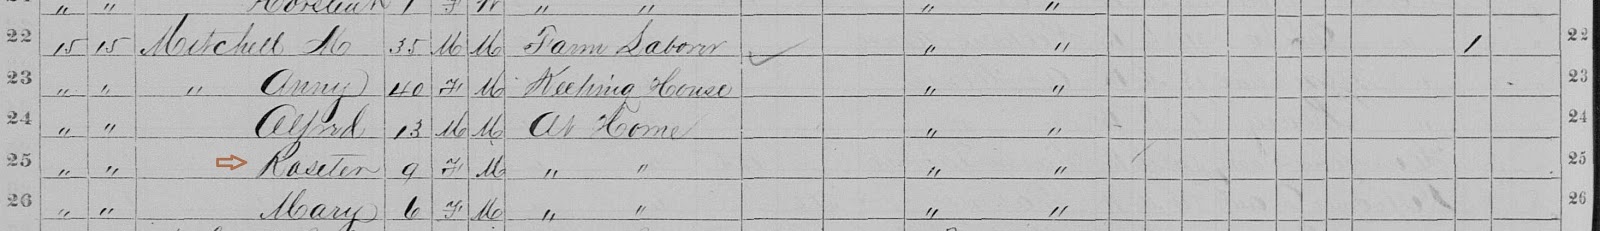 " " 1 F W " " " "
22 15 15 Mitchell M 35 M M Farm Laborer " " 1 22
23 " " " Anny 40 F M Keeping House " " 23
24 " " Alfred 13 M M At Home " " 24
25 " " Roseter 9 F M " " " " 25
26 " " Mary 6 F M " " " " 26